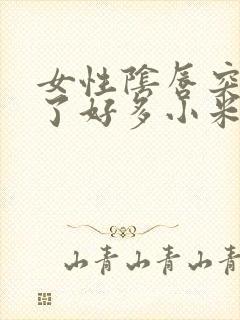 女性陰唇突
了好多小米
山青山青山青